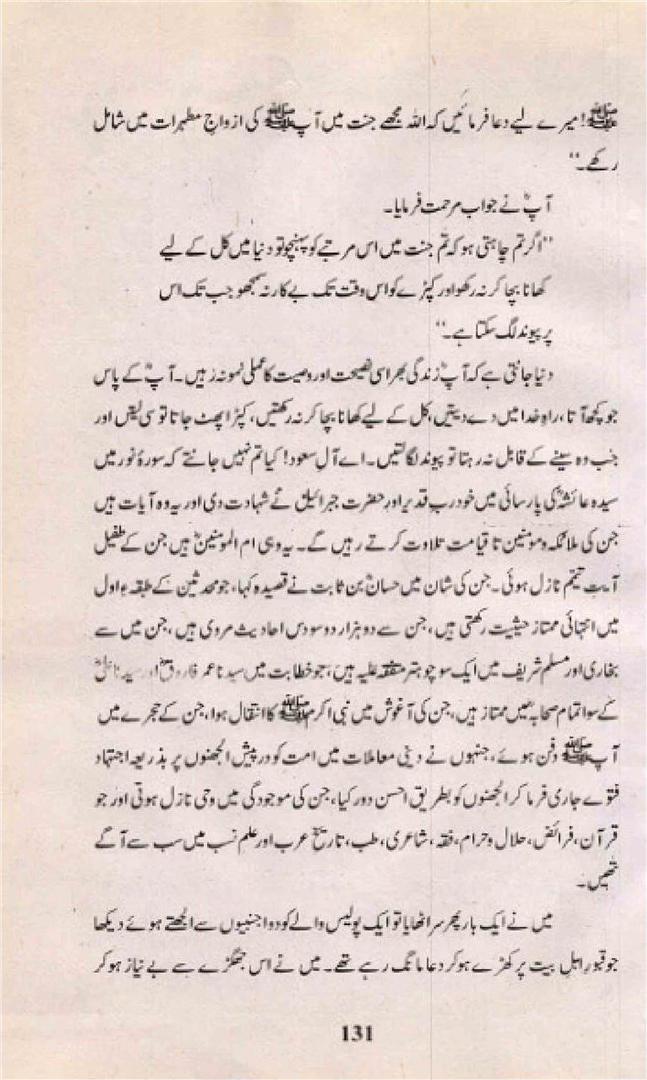 ﷺ! میرے لیے دعا فرمائیں کہ اللہ مجھے جنت میں آپﷺ کی ازواجِ مطہرات میں شامل
رکھے۔"
آپؐ نے جواب مرحمت فرمایا۔
"اگر تم چاہتی ہو کہ تم جنت میں اس مرتبے کو پہنچو تو دنیا میں کل کے لیے
کھانا بچا کر نہ رکھو اور کپڑے کو اس وقت تک بے کار نہ سمجھو جب تک اس
پر پیوند لگ سکتا ہے۔"
دنیا جانتی ہے کہ آپؓ زندگی بھر اسی نصیحت اور وصیت کا عملی نمونہ رہیں۔ آپؓ کے پاس
جو کچھ آتا، راہِ خدا میں دے دیتیں، کل کے لیے کھانا بچا کر نہ رکھتیں، کپڑا پھٹ جاتا تو سی لیتیں اور
جب وہ سینے کے قابل نہ رہتا تو پیوند لگا لیتیں۔ اے آلِ سعود! کیا تم نہیں جانتے کہ سورۂ نور میں
سیدہ عائشہؓ کی پارسائی میں خود ربِ قدیر اور حضرت جبرائیلؑ نے شہادت دی اور یہ وہ آیات ہیں
جن کی ملائکہ و مومنین تا قیامت تلاوت کرتے رہیں گے۔ یہ وہی ام المومنینؓ ہیں جن کے طفیل
آیتِ تیمم نازل ہوئی۔ جن کی شان میں حسانؓ بن ثابت نے قصیدہ کہا، جو محدثین کے طبقہء اول
میں انتہائی ممتاز حیثیت رکھتی ہیں، جن سے دو ہزار دو سو دس احادیث مروی ہیں، جن میں سے
بخاری اور مسلم شریف میں ایک سو چوہتر متفقہ علیہ ہیں، جو خطابت میں سیدنا عمر فاروقؓ اور سیدنا علیؓ
کے سوا تمام صحابہ میں ممتاز ہیں، جن کی آغوش میں نبی اکرمﷺ کا انتقال ہوا، جن کے حجرے میں
آپﷺ دفن ہوئے، جنہوں نے دینی معاملات میں امت کو درپیش الجھنوں پر بذریعہ اجتہاد
فتوے جاری فرما کر الجھنوں کو بطریقِ احسن دور کیا، جن کی موجودگی میں وحی نازل ہوتی اور جو
قرآن، فرائض، حلال و حرام، فقہ، شاعری، طب، تاریخِ عرب اور علمِ نسب میں سب سے آگے
تھیں۔
میں نے ایک بار پھر سر اٹھایا تو ایک پولیس والے کو دو اجنبیوں سے الجھتے ہوئے دیکھا
جو قبورِ اہلِ بیت پر کھڑے ہو کر دعا مانگ رہے تھے۔ میں نے اس جھگڑے سے بے نیاز ہو کر
131